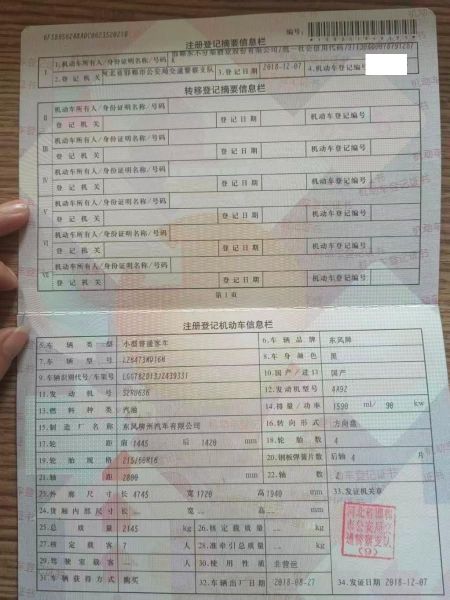 注册登记摘要信息栏
编号:
I 1.机动车所有人/身份证明名称/号码
2.登记机关 河北省邯郸市公安局交通警察支队 3.登记日期 2018-12-07 4.机动车登记编号
转移登记摘要信息栏
II 机动车所有人/身份证明名称/号码
登记机关 登记日期 机动车登记编号
III 机动车所有人/身份证明名称/号码
登记机关 登记日期 机动车登记编号
IV 机动车所有人/身份证明名称/号码
登记机关 登记日期 机动车登记编号
V 机动车所有人/身份证明名称/号码
登记机关 登记日期 机动车登记编号
VI 机动车所有人/身份证明名称/号码
登记机关 登记日期 机动车登记编号
VII 机动车所有人/身份证明名称/号码
登记机关 登记日期 机动车登记编号
第1页
注册登记机动车信息栏
5.车辆类型 小型普通客车 6.车辆品牌 东风牌
7.车辆型号 8.车身颜色 黑
9.车辆识别代号/车架号 10.国产/进口 国产
11.发动机号 12.发动机型号 4A92
13.燃料种类 汽油 14.排量/功率 1590 ml/ 90 kw
15.制造厂名称 东风柳州汽车有限公司 16.转向形式 方向盘
17.轮距 前 1445 后 1420 mm 18.轮胎数 4
19.轮胎规格 215/60R16 20.钢板弹簧片数 后轴 片
21.轴距 2800 mm 22.轴数 2
23.外廓尺寸 长 4745 宽 1720 高 1940 mm 33.发证机关章
24.货厢内部尺寸 长 -- 宽 -- 高 -- mm
25.总质量 2145 kg 26.核定载质量 -- kg
27.核定载客 7 人 28.准牵引总质量 -- kg
29.驾驶室载客 -- 人 30.使用性质 非营运
31.车辆获得方式 购买 32.车辆出厂日期 2018-08-27 34.发证日期 2018-12-07
河北省邯郸
市公安局交
通警察支队
(9)